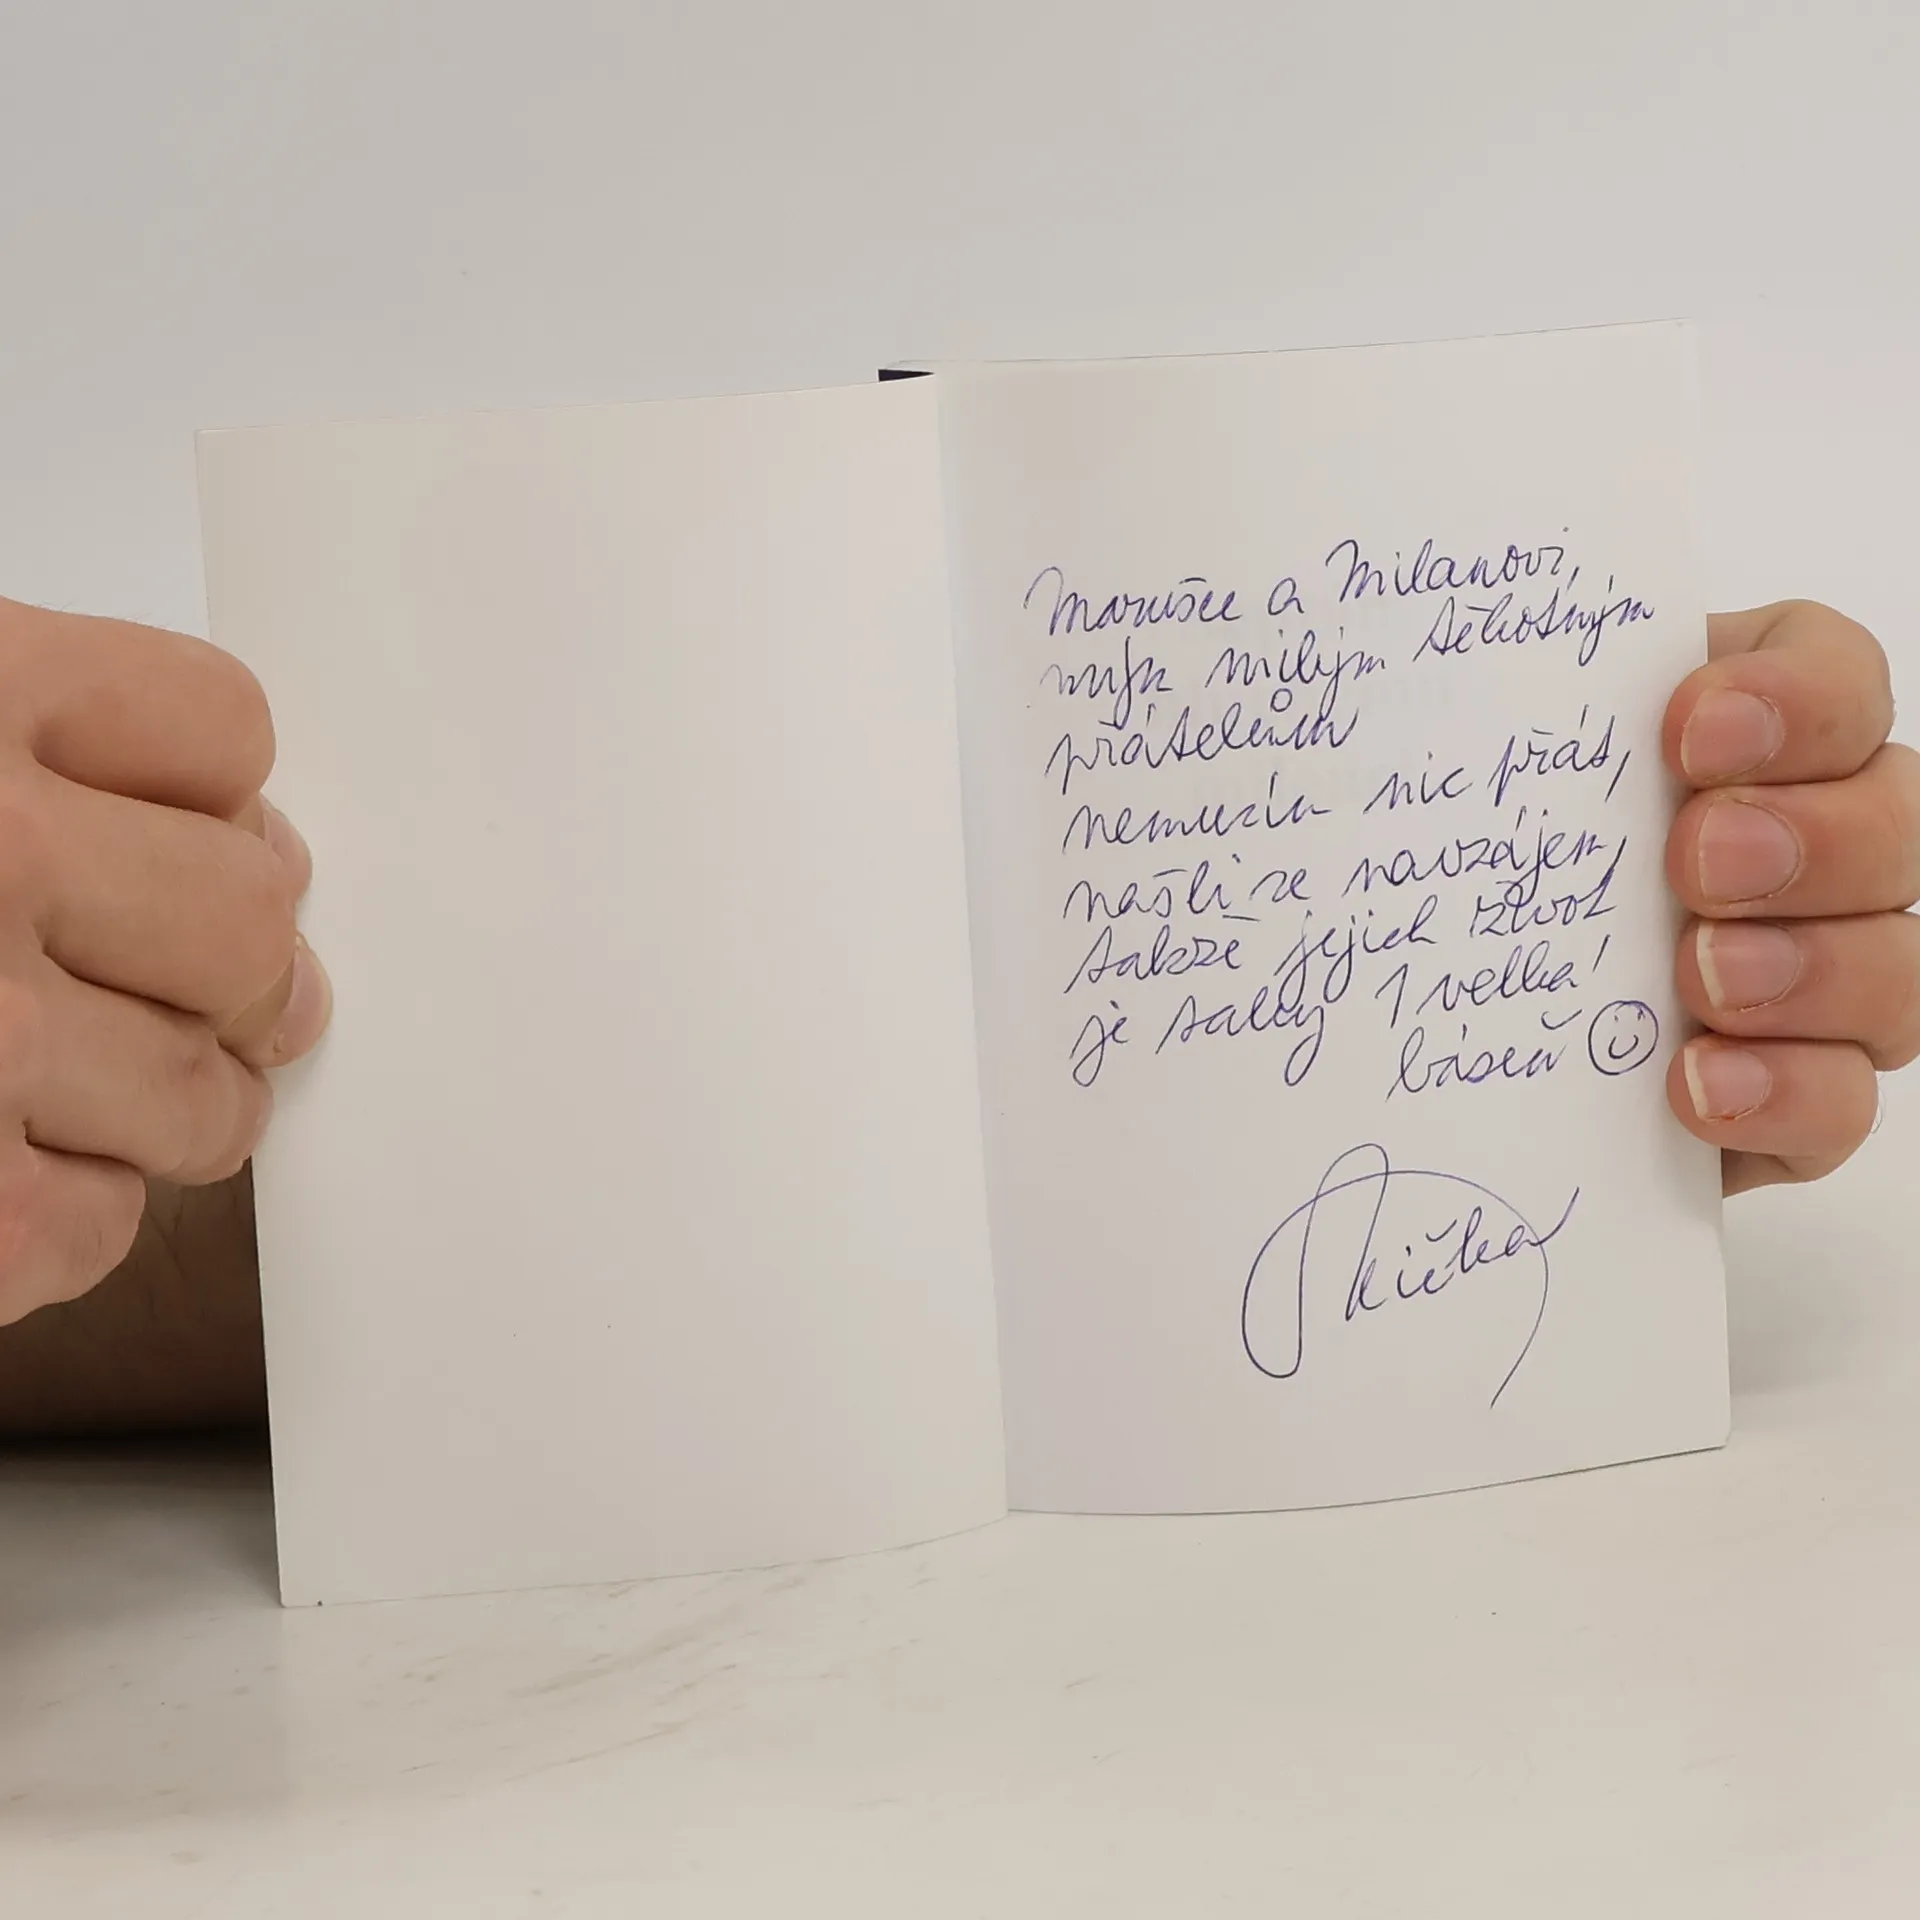 Marušce a Milanovi,
mým milým
přátelům
nemusím nic přát,
našli se navzájem,
takže jejich život
je taky 1 velká
báseň